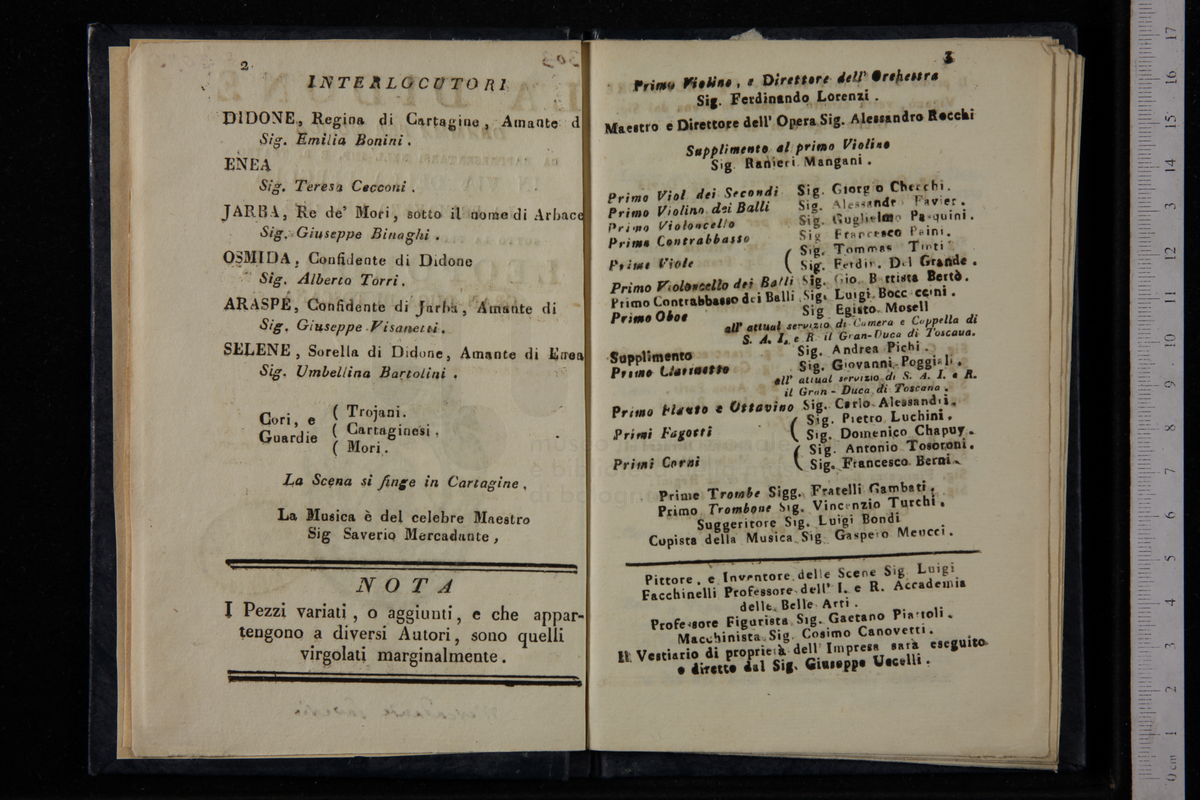 2
INTERLOCUTORI
DIDONE, Regina di Cartagine, Amante d
Sig. Emilia Bonini.
ENEA
Sig. Teresa Cecconi.
JARBA, Re de' Mori, sotto il nome di Arbace
Sig. Giuseppe Binaghi.
OSMIDA, Confidente di Didone
Sig. Alberto Torri.
ARASPE, Confidente di Jarba, Amante di
Sig. Giuseppe Visanetti.
SELENE, Sorella di Didone, Amante di Enea
Sig. Umbellina Bartolini.
Cori, e Guardie
( Trojani.
( Cartaginesi.
( Mori.
La Scena si finge in Cartagine.
La Musica è del celebre Maestro
Sig Saverio Mercadante,
NOTA
I Pezzi variati, o aggiunti, e che appar-
tengono a diversi Autori, sono quelli
virgolati marginalmente.
3
Primo Violino, e Direttore dell' Orchestra
Sig. Ferdinando Lorenzi.
Maestro e Direttore dell' Opera Sig. Alessandro Rocchi
Supplimento al primo Violino
Sig. Ranieri Mangani.
Primo Viol dei Secondi Sig. Giorg o Checchi.
Primo Violino dei Balli Sig. Alessandr Favier.
Primo Violoncello Sig. Guglielmo Pasquini.
Primo Contrabbasso Sig Francesco Paini.
Prime Viole ( Sig. Tommas Tinti
( Sig. Ferdin. Del Grande.
Primo Violoncello dei Balli Sig. Gio. B ttista Bertò.
Primo Contrabbasso dei Balli Sig. Luigi Bocc ccini.
Primo Oboe Sig Egisto Mosell
all' attual servizio di Camera e Cappella di
S. A. I. e R il Gran-Duca di Toscana.
Supplimento Sig. Andrea Pichi.
Primo Clarinetto Sig. Giovanni Poggiali.
all' attual servizio di S. A. I. e R.
il Gran-Duca di Toscana.
Primo Flauto e Ottavino Sig. Carlo Alessandri.
Primi Fagotti ( Sig. Pietro Luchini.
( Sig. Domenico Chapuy.
Primi Corni ( Sig. Antonio Tosoroni.
( Sig. Francesco Berni.
Prime Trombe Sigg. Fratelli Gambati.
Primo Trombone Sig. Vincenzio Turchi.
Suggeritore Sig. Luigi Bondi
Copista della Musica Sig. Gaspero Meucci.
Pittore, e Inventore delle Scene Sig. Luigi
Facchinelli Professore dell' I. e R. Accademia
delle Belle Arti.
Professore Figurista Sig. Gaetano Piattoli.
Macchinista Sig. Cosimo Canovetti.
Il Vestiario di proprietà dell' Impresa sarà eseguito
e diretto dal Sig. Giuseppe Uccelli.